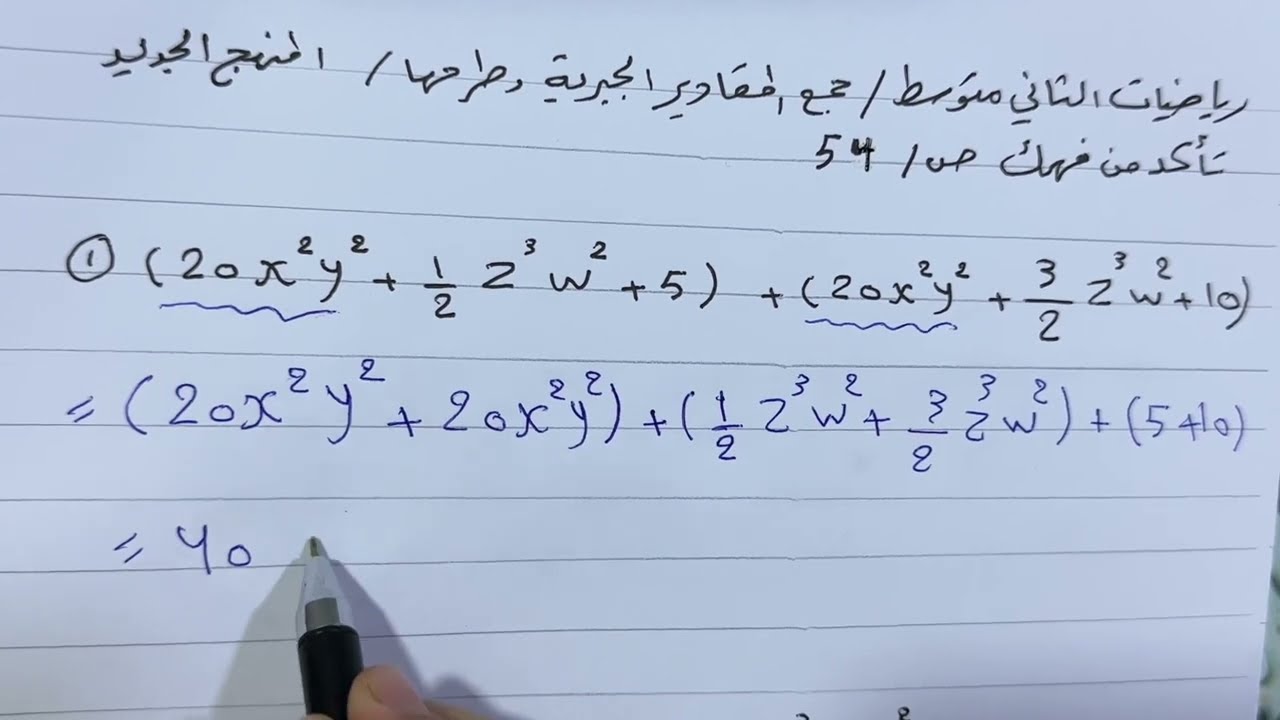 رياضيات الثاني متوسط / جمع المقادير الجبرية وطرحها / المنهج الجديد
تأكد من فهمك ص / 54
① (20x²y² + 1/2 Z³w² + 5) + (20x²y² + 3/2 Z³w² + 10)
= (20x²y² + 20x²y²) + (1/2 Z³w² + 3/2 Z³w²) + (5+10)
= 40